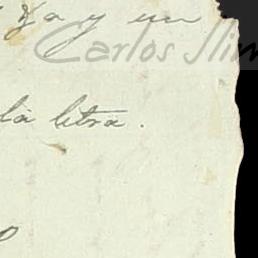 y un
Carlos Slim
la letra.
o